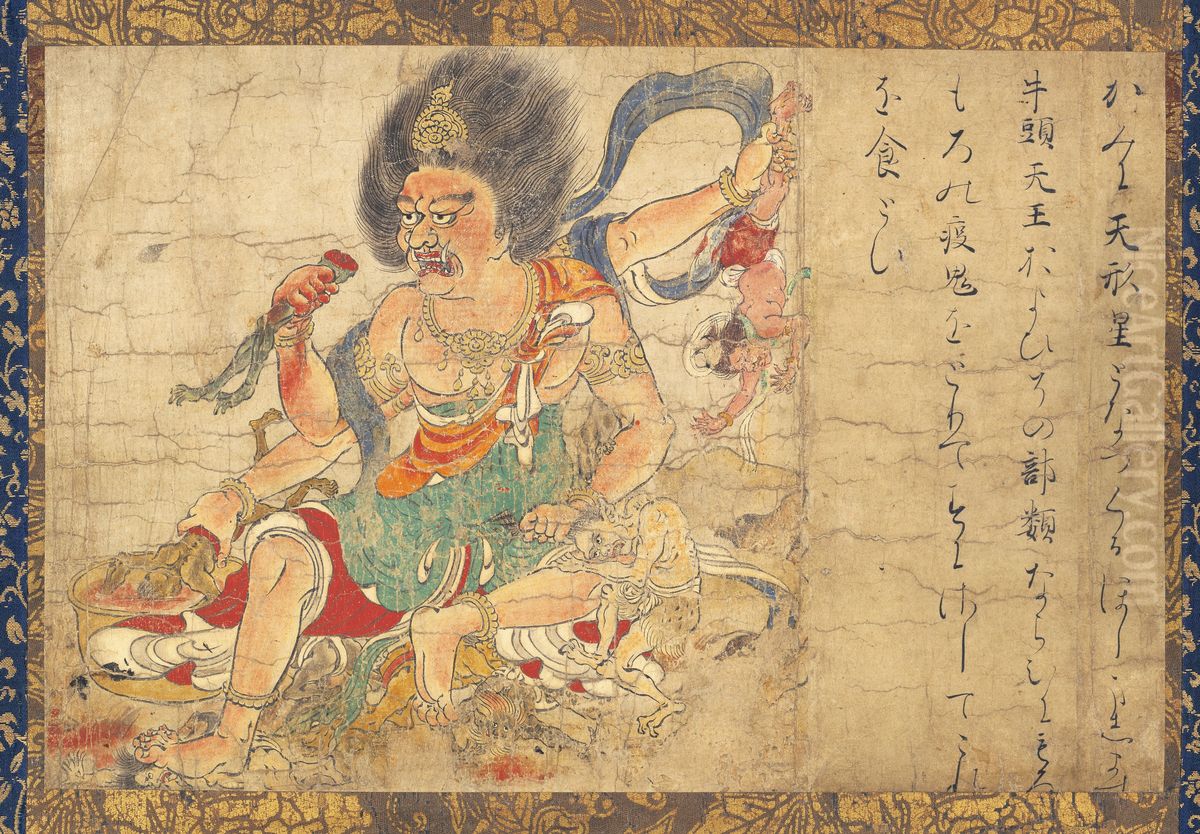 かみに天形星となつくるほし
牛頭天王およひその部類ならひにもろ
もろの疫鬼をとりてすにさしてこれ
を食とす
NiceArtGallery.com